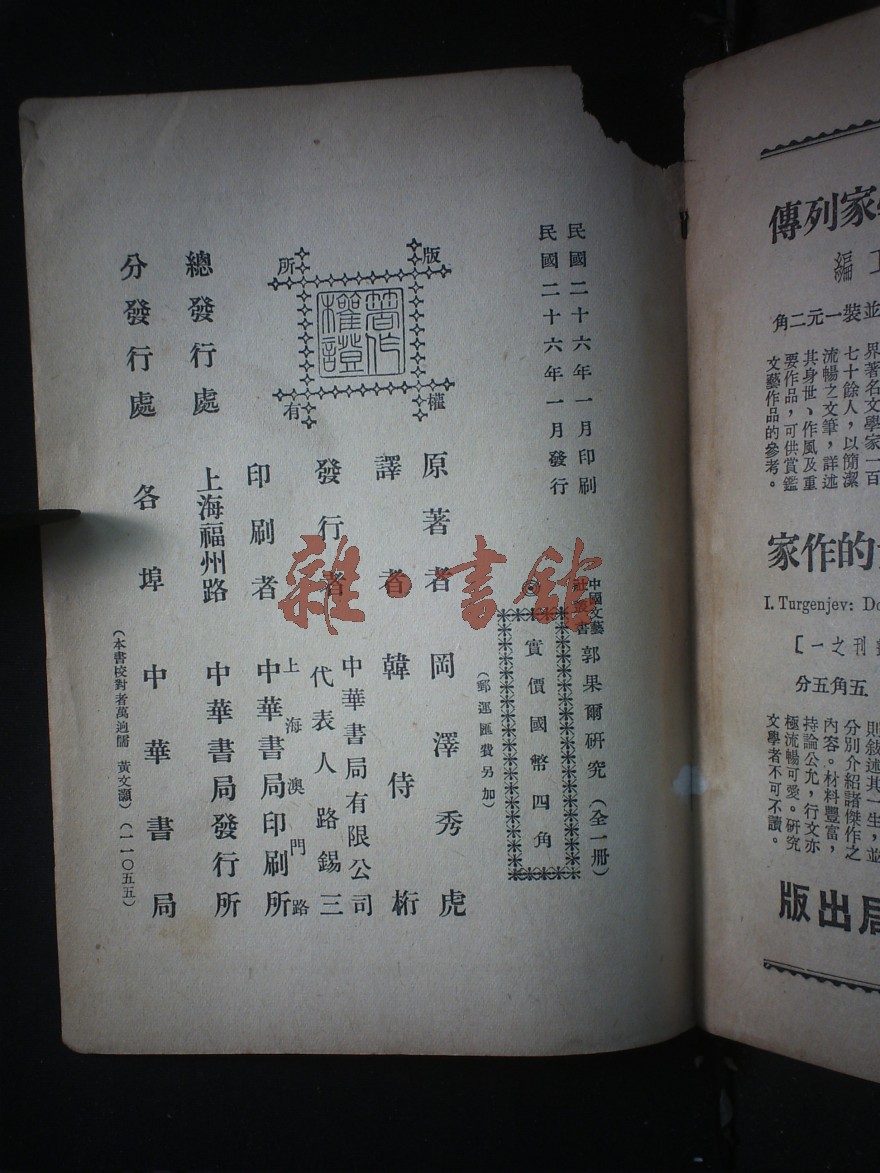 民國二十六年一月印刷
民國二十六年一月發行
中國文藝社叢書 郭果爾研究(全一册)
◎ 實價國幣四角
(郵運匯費另加)
版權所有
著作權證
原著者 岡澤秀虎
譯者 韓侍桁
發行者 中華書局有限公司
代表人 路錫三
印刷者 上海澳門路
中華書局印刷所
總發行處 上海福州路 中華書局發行所
分發行處 各埠 中華書局
(本書校對者萬逈儒 黃文灝)(一一〇五五)
雜·書館
家列傳
編
並裝一元二角
界著名文學家一百
七十餘人,以簡潔
流暢之文筆,詳述
其身世、作風及重
要作品,可供賞鑑
文藝作品的參考。
的作家
I. Turgenjev:
刊之一】
五角五分
則敍述其一生,並
分別介紹諸傑作之
內容。材料豐富,
持論公允,行文亦
極流暢可愛。研究
文學者不可不讀。
局出版